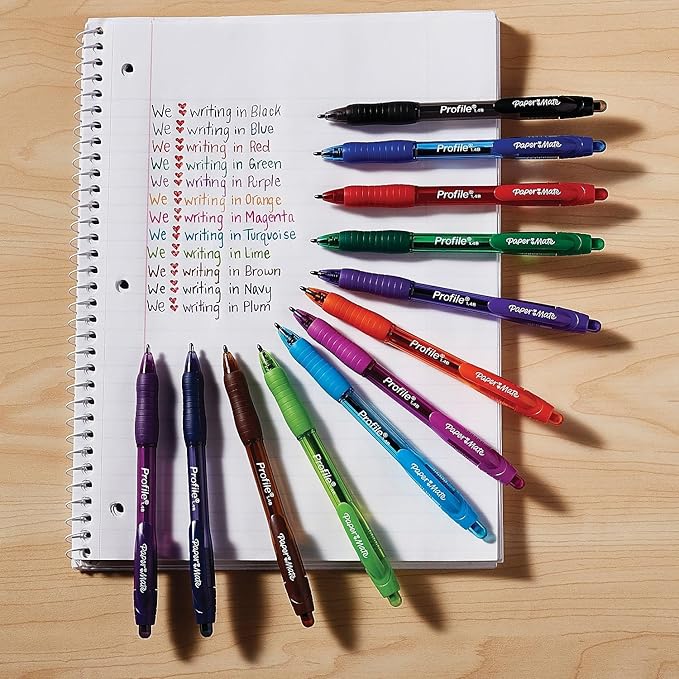 We ♥ writing in Black
We ♥ writing in Blue
We ♥ writing in Red
We ♥ writing in Green
We ♥ writing in Purple
We ♥ writing in Orange
We ♥ writing in Magenta
We ♥ writing in Turquoise
We ♥ writing in Lime
We ♥ writing in Brown
We ♥ writing in Navy
We ♥ writing in Plum
Profile 1.4B PaperMate
Profile 1.4B PaperMate
Profile 1.4B PaperMate
Profile 1.4B PaperMate
Profile 1.4B PaperMate
Profile 1.4B PaperMate
Profile 1.4B PaperMate
Profile 1.4B PaperMate
Profile 1.4B PaperMate
Profile 1.4B PaperMate
Profile 1.4B PaperMate
Profile 1.4B PaperMate